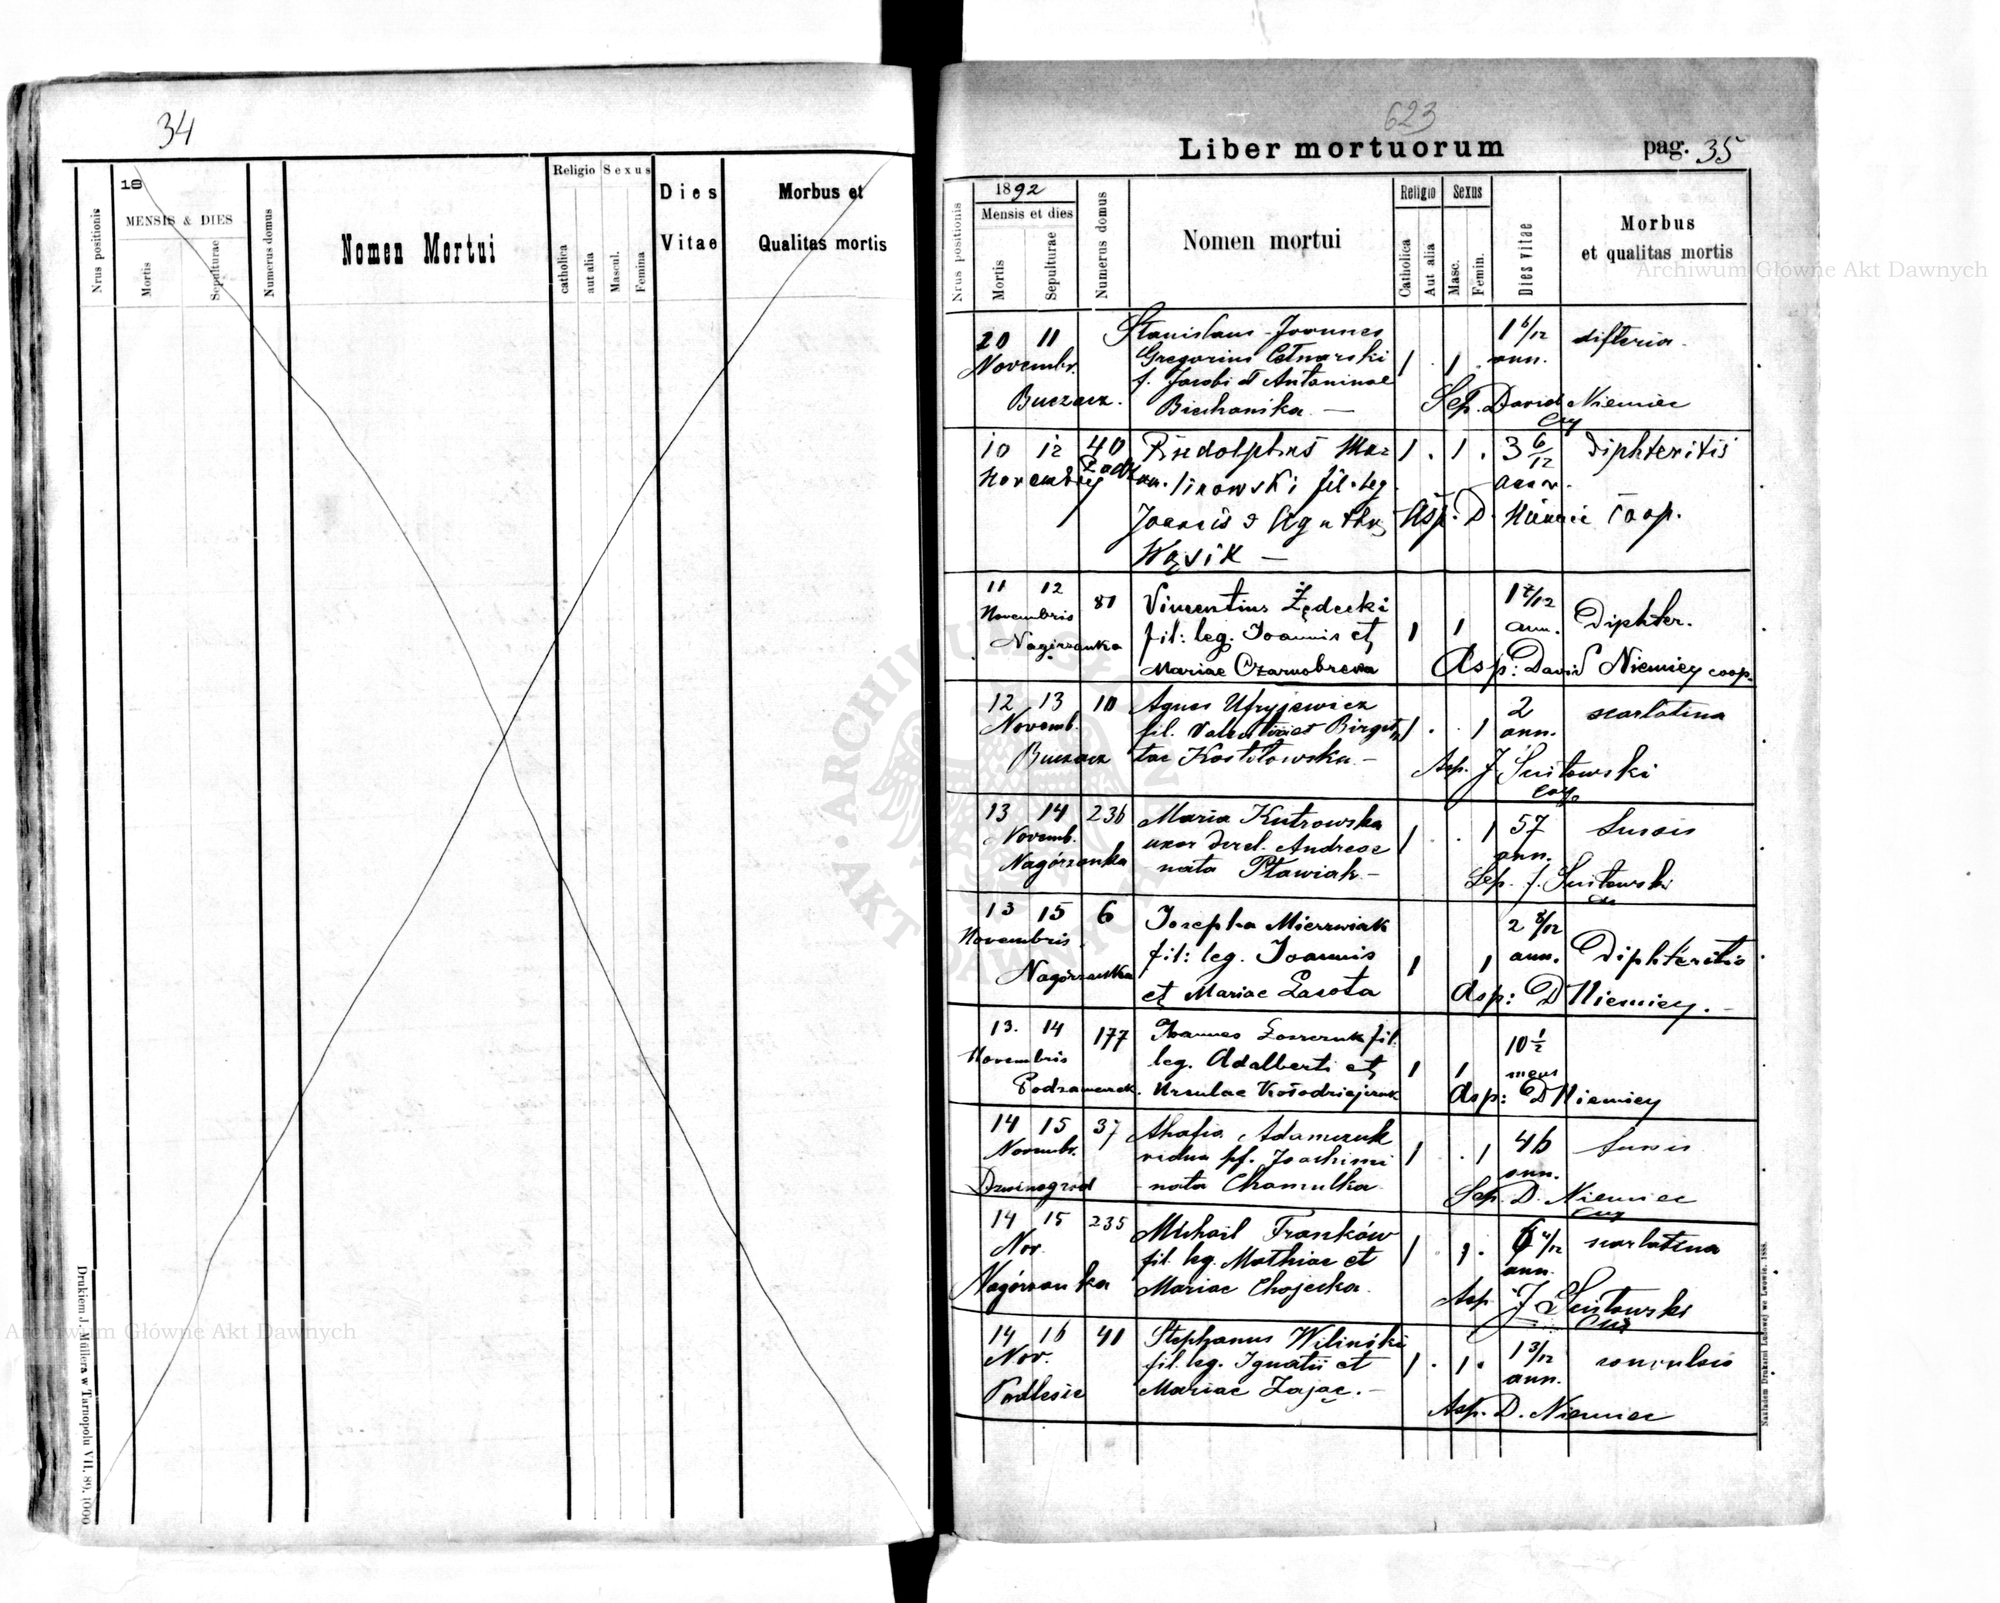 34
18
Nrus positionis
MENSIS & DIES
Mortis
Sepulturae
Numerus domus
Nomen Mortui
Religio
catholica
aut alia
Sexus
Mascul.
Femina
Dies
Vitae
Morbus et
Qualitas mortis
Drukiem J. Müllera w Tarnopolu VII. 89. 1000
623
Liber mortuorum pag. 35
Nrus positionis
1892
Mensis et dies
Mortis
Sepulturae
Numerus domus
Nomen mortui
Religio
Catholica
Aut alia
Sexus
Masc.
Femin.
Dies vitae
Morbus
et qualitas mortis
20 11 Stanislaus Joannes 1 6/12 difteria
Novembr. Gregorius Cetnarski 1 . 1 . ann.
f. Jacobi et Antoninae
Buczacz. Biechonska — Sep. David Niemiec
10 12 40 Rudolphus Ma= 1 . 1 . 3 6/12 Diphteritis
Novembris fil. leg.
Joannis & Agathae Asp. D. Niemiec coop.
Wąsik —
11 12 81 Vincentius Żędecki 1 7/12 Diphter.
Novembris fil: leg. Joannis et 1 1 ann.
Nagórzanka Mariae Czarnobrewa Asp: David Niemiey coop.
12 13 10 Agnes 2 scarlatina
Novemb. fil. Valentini et Birgit 1 . . 1 ann.
Buczacz tae Kostilowska — Asp. J
13 14 236 Maria Kutrowska 1 . . 1 57 tussis
Novemb. uxor derel. Andreae ann.
Nagórzanka nata Pławiak — Sep. J.
13 15 6 Josepha Mierzwiak 2 8/12
Novembris fil: leg. Joannis 1 1 ann. Diphteritis
Nagórzanka et Mariae Lasota Asp: D Niemiey. —
13. 14 177 Joannes fil. 10 1/2
Novembris leg. Adalberti et 1 1 mens
Podzameczek. Ursulae Kołodziejczuk Asp: D Niemiey
14 15 37 Ahafia Adamczuk 1 . . 1 46 tussis
Novembr. vidua pf. Joachimi ann.
Dzwinogród nata Chamulka Sep. D. Niemiec
14 15 235 Michail Franków 1 . 1 . 4/12 scarlatina
Nov. fil. leg. Mathiae et ann.
Nagórzanka Mariae Chojecka. Asp J
14 16 41 Stephanus Wiliński 1 3/12 convulsio
Nov. fil. leg. Ignatii et 1 . 1 . ann.
Podlesie Mariae Zając. — Asp. D. Niemiec
Nakładem Drukarni Ludowej we Lwowie. 1888.
Archiwum Główne Akt Dawnych
Archiwum Główne Akt Dawnych
ARCHIWUM GŁÓWNE AKT DAWNYCH